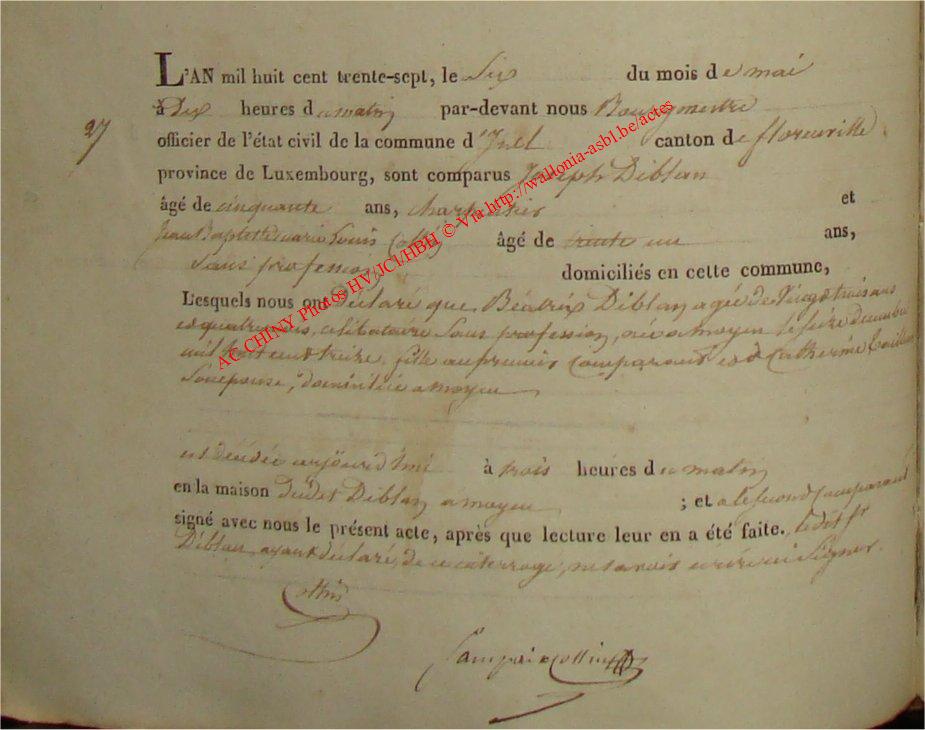 L'AN mil huit cent trente-sept, le Six du mois de mai
à Dix heures du matin par-devant nous Bourgmestre
27
officier de l'état civil de la commune d'Izel canton de florenville
province de Luxembourg, sont comparus Joseph Diblan
âgé de cinquante ans, charpentier et
Jean Baptiste marie Louis Collin âgé de trente un ans,
Sans profession domiciliés en cette commune,
Lesquels nous ont déclaré que Béatrix Diblan agée de Vingt trois ans
et quatre mois, célibataire Sans profession, née a moyen le seize décembre
mil huit cent treize, fille au premier Comparant et d Catherine
Son épouse, domiciliée a moyen
est décédée aujourd'hui à trois heures du matin
en la maison dudit Diblan a moyen ; et a le second Comparant
signé avec nous le présent acte, après que lecture leur en a été faite. ledit Sr
Diblan, ayant déclaré, de ce interrogé, ne savoir écrire ni Signer.
Collin
Collin
AC CHINY Photos HV/JCl/HBH © Via http://wallonia-asbl.be/actes